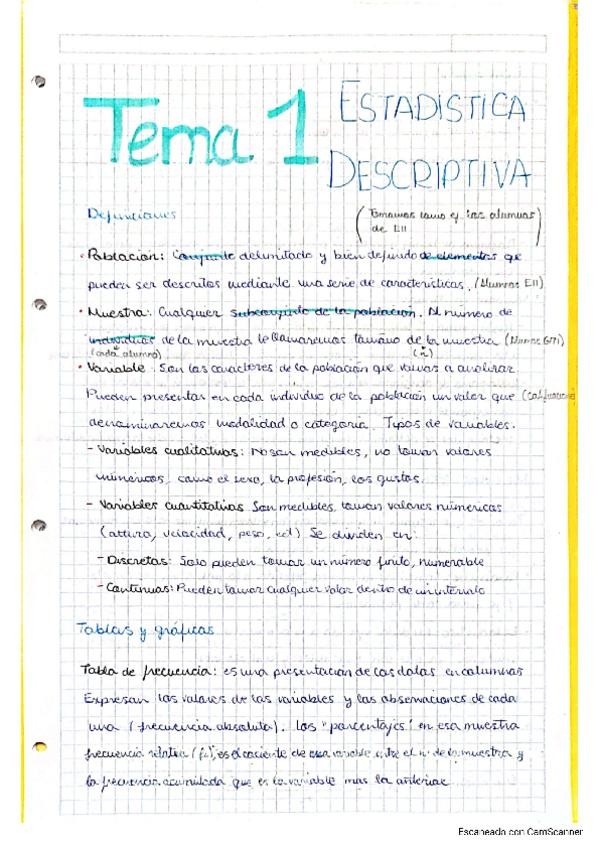 Tema 1 ESTADISTICA
DESCRIPTIVA
Definiciones
(Tomamos como ej. los alumnos
de EII)
• Población: Conjunto delimitado y bien definido de elementos que
pueden ser descritos mediante una serie de características. (Alumnos EII)
• Muestra: Cualquier subconjunto de la población. Al número de
individuos de la muestra le llamaremos tamaño de la muestra (Alumnos
(cada alumno) (n)
• Variable: Son los caracteres de la población que vamos a analizar.
Pueden presentar en cada individuo de la población un valor que
denominaremos modalidad o categoría. Tipos de variables.
- Variables cualitativas: No son medibles, no toman valores
numéricos, como el sexo, la profesión, los gustos.
- Variables cuantitativas Son medibles, toman valores numéricos
(altura, velocidad, peso, ect) Se dividen en:
- Discretas: Solo pueden tomar un número finito, numerable
- Continuas: Pueden tomar cualquier valor dentro de un intervalo
Tablas y gráficas
Tabla de frecuencia: es una presentación de los datos en columnas
Expresan los valores de las variables y las observaciones de cada
una (frecuencia absoluta). Los "porcentajes" en esa muestra
frecuencia relativa es el cociente de esa variable entre el nº de la muestra y
la frecuencia acumulada que es la variable mas la anterior
Escaneado con CamScanner